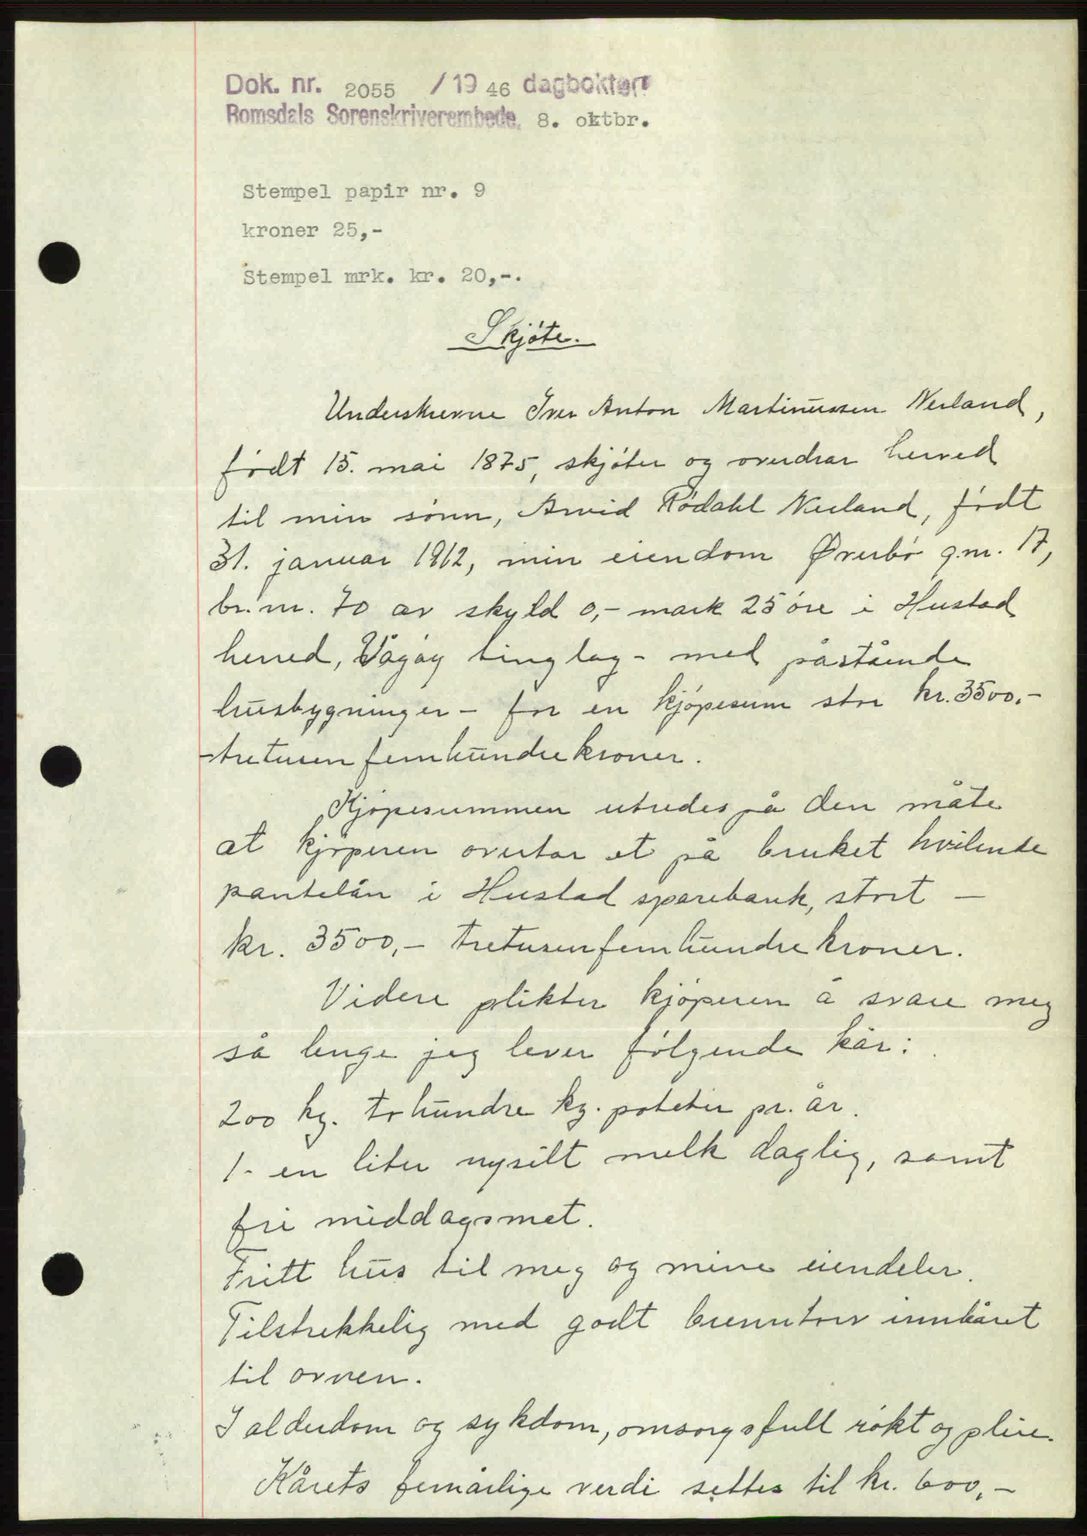 Dok. nr. 2055 / 19 46 dagboken
Romsdals Sorenskriverembede, 8. oktbr.
Stempel papir nr. 9
kroner 25,-
Stempel mrk. kr. 20,-.
Skjøte.
Underskrevne Iver Anton Martinussen Nerland,
født 15. mai 1875, skjøter og overdrar herved
til min sønn, Arvid Rødahl Nerland, født
31. januar 1912, min eiendom Øverbø g.nr. 17,
br.nr. 70 av skyld 0,- mark 25 øre i Hustad
herred, Vågøy tinglag - med påstående
husbygninger - for en kjøpesum stor kr. 3500,-
- tretusenfemhundrekroner.
Kjøpesummen utredes på den måte
at kjøperen overtar et på bruket hvilende
pantelån i Hustad sparebank, stort -
kr. 3500,- tretusenfemhundrekroner.
Videre plikter kjøperen å svare meg
så lenge jeg lever følgende kår:
200 kg. tohundre kg. poteter pr. år.
1- en liter nysilt melk daglig, samt
fri middagsmat.
Fritt hus til meg og mine eiendeler.
Tilstrekkelig med godt brenntorv innbåret
til ovnen.
I alderdom og sykdom, omsorgsfull røkt og pleie.
Kårets femårlige verdi settes til kr. 600,-